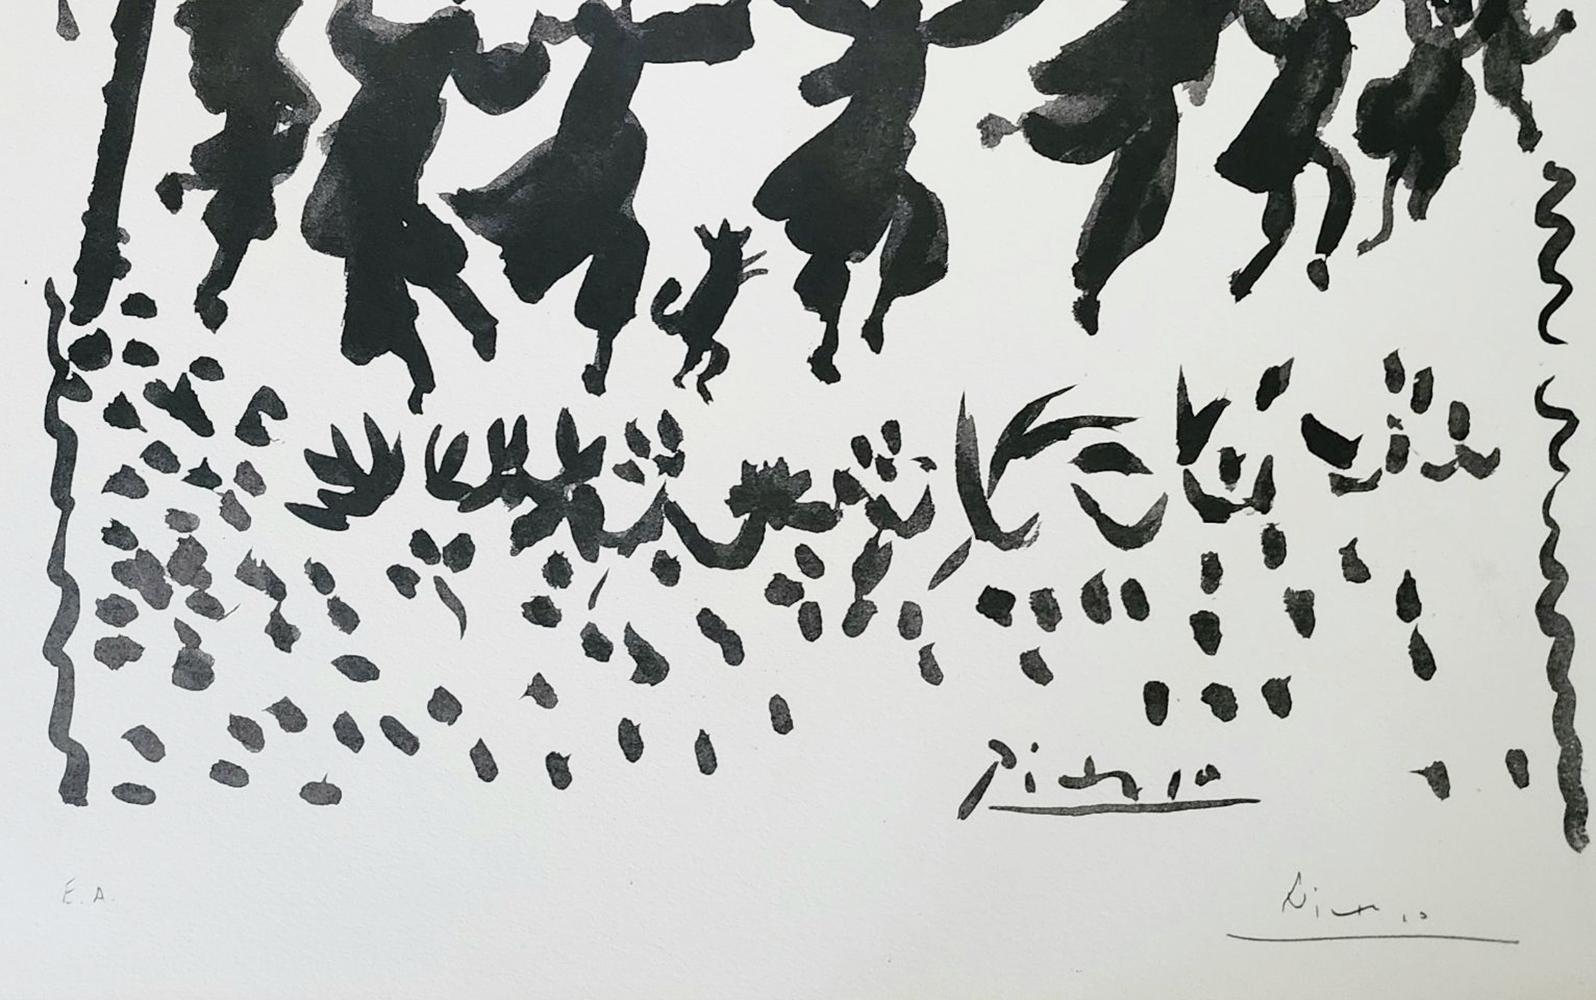 Picasso
E. A.
Picasso